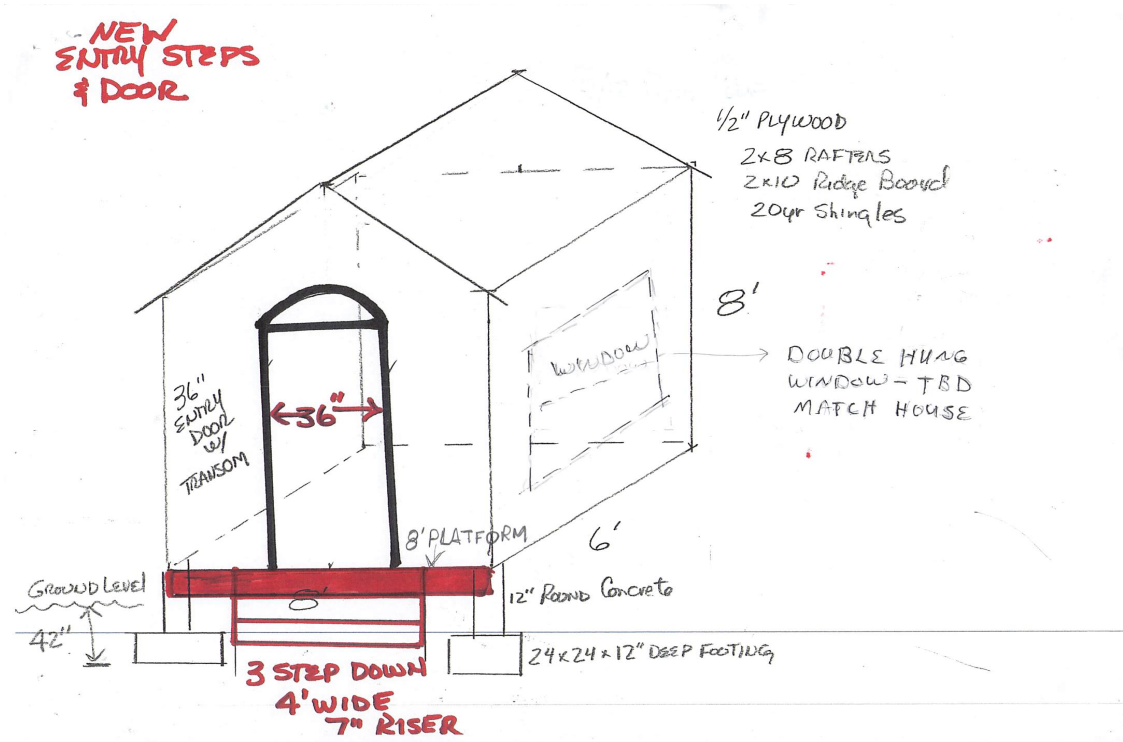 NEW
ENTRY STEPS
& DOOR
1/2" PLYWOOD
2x8 RAFTERS
2x10 Ridge Board
20yr Shingles
8'
WINDOW
DOUBLE HUNG
WINDOW - TBD
MATCH HOUSE
36"
ENTRY
DOOR
W/
TRANSOM
36"
8' PLATFORM
6'
GROUND LEVEL
42"
8'
12" ROUND Concrete
24x24x12" DEEP FOOTING
3 STEP DOWN
4' WIDE
7" RISER